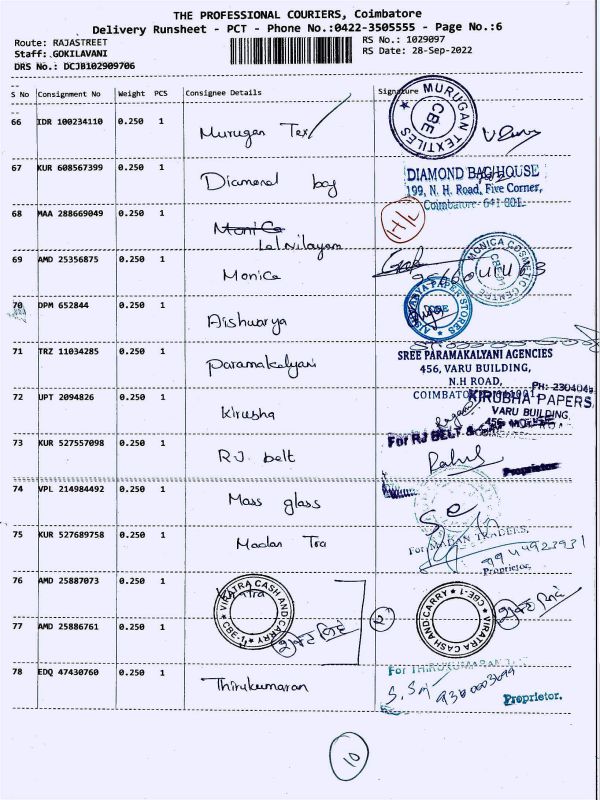 THE PROFESSIONAL COURIERS, Coimbatore
Delivery Runsheet - PCT - Phone No.:0422-3505555 - Page No.:6
Route: RAJASTREET
RS No.: 1029097
Staff: GOKILAVANI
RS Date: 28-Sep-2022
DRS No.: DCJB102909706
S No Consignment No Weight PCS Consignee Details Signature
66 IDR 100234110 0.250 1 Murugan Tex MURUGAN TEXTILES CBE
67 KUR 608567399 0.250 1 Diamond bag DIAMOND BAG HOUSE
199, N. H. Road, Five Corner,
Coimbatore - 641 001.
68 MAA 288669049 0.250 1 Lal Nilayam H/L
69 AMD 25356875 0.250 1 Monica MONICA COSMETIC CENTRE CBE
70 DPM 652844 0.250 1 Aishwarya PAPER STORES
71 TRZ 11034285 0.250 1 Paramakalyani SREE PARAMAKALYANI AGENCIES
456, VARU BUILDING,
N.H ROAD,
72 UPT 2094826 0.250 1 Kirusha KIRUBHA PAPERS
VARU BUILDING,
73 KUR 527557098 0.250 1 RJ belt For RJ BELT &
Rahul
Proprietor
74 VPL 214984492 0.250 1 Mass glass
75 KUR 527689758 0.250 1 Madan Tra For MADAN TRADERS,
9944923931
Proprietor.
76 AMD 25887073 0.250 1 VIRATRA CASH AND CARRY CBE-1 VIRATRA CASH AND CARRY CBE-1
77 AMD 25886761 0.250 1
78 EDQ 47430760 0.250 1 Thirukumaran For THIRUKUMARAN
Proprietor.
10